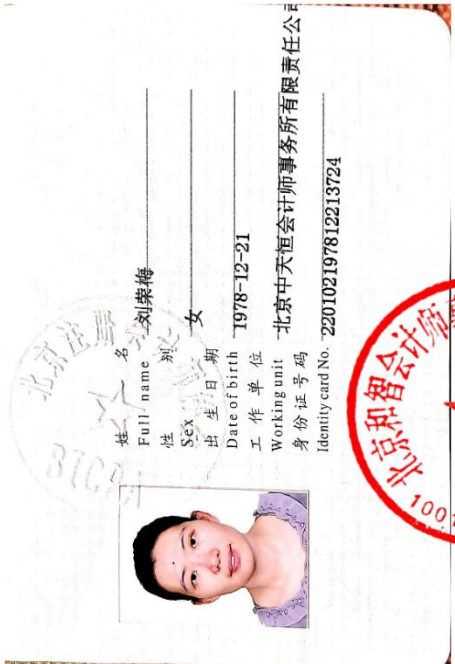 姓名
Full name 刘荣梅
性别
Sex 女
出生日期
Date of birth 1978-12-21
工作单位
Working unit 北京中天恒会计师事务所有限责任公司
身份证号码
Identity card No. 220102197812213724
北京
BICPA
北京和智会计师
1001